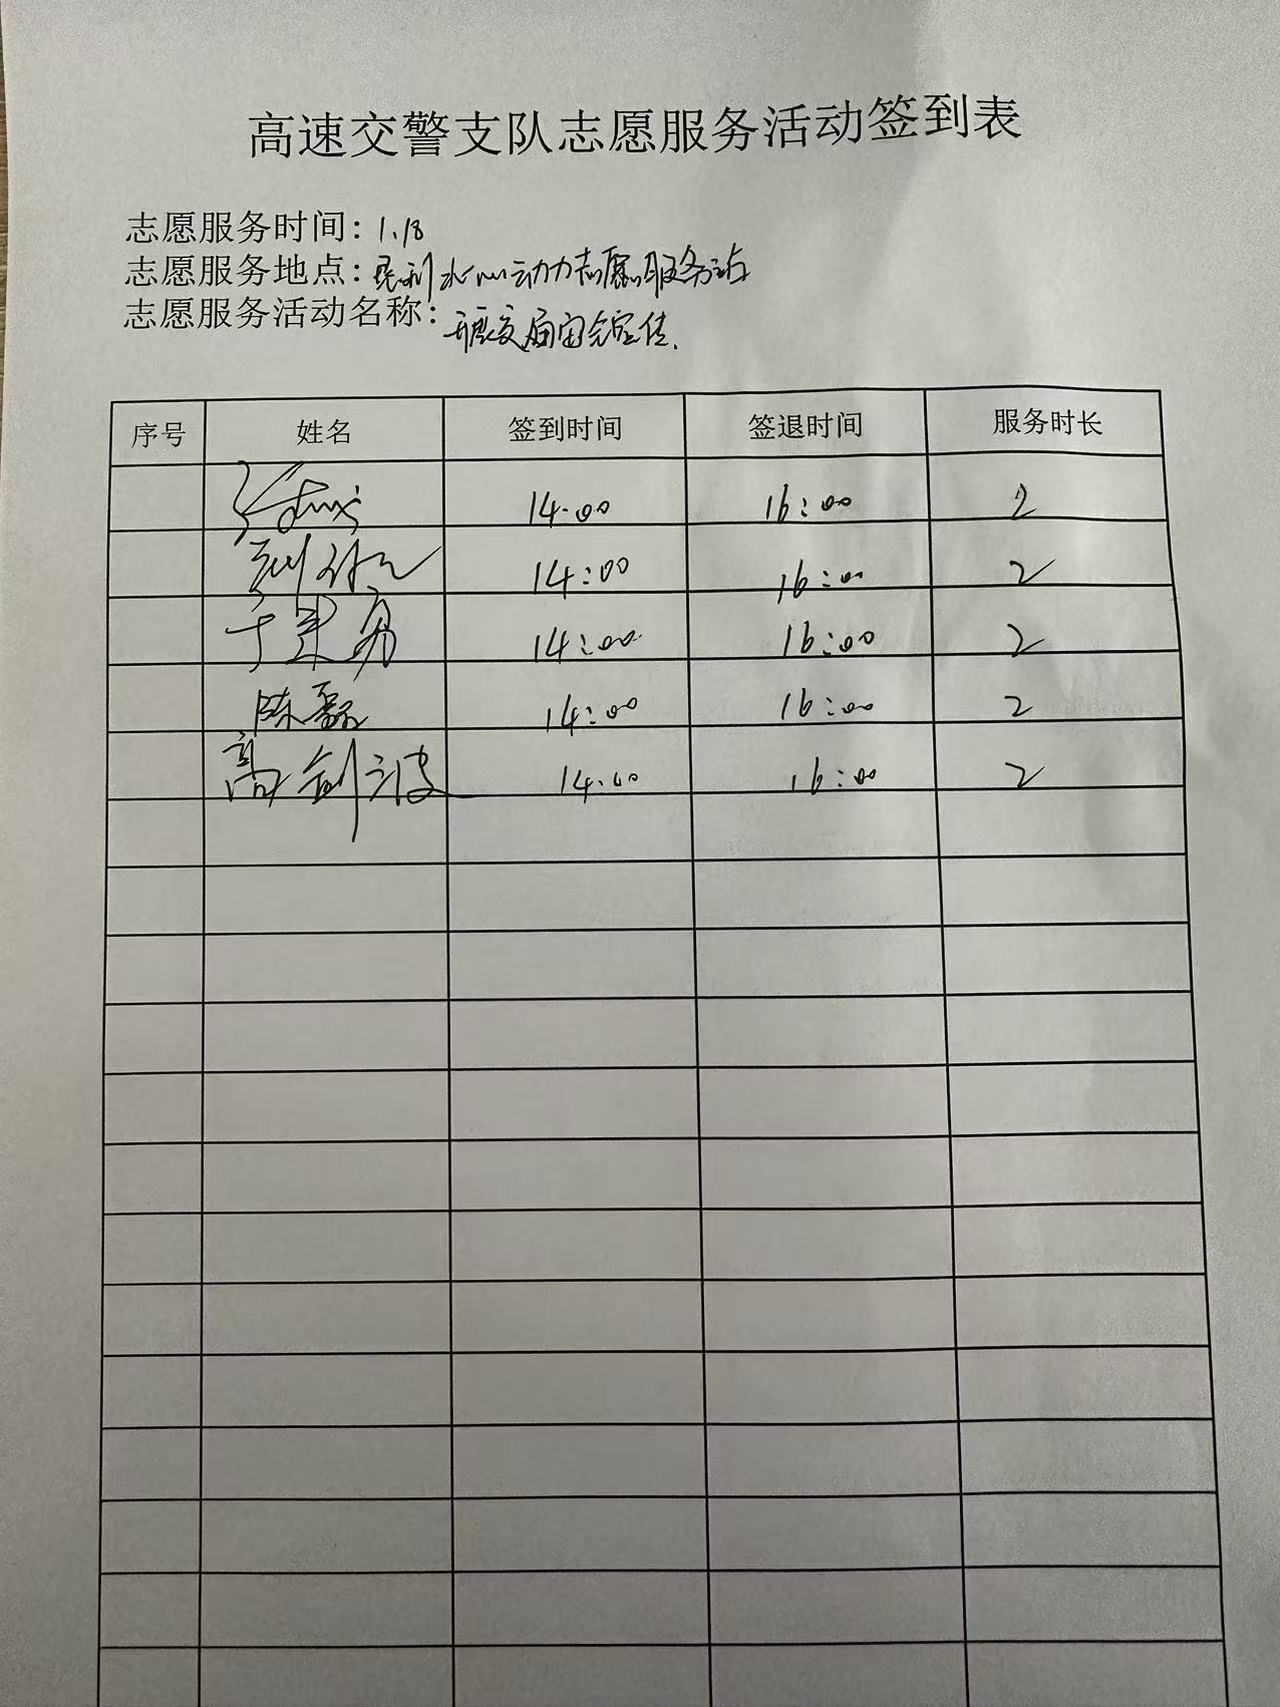 高速交警支队志愿服务活动签到表
志愿服务时间：1.18
志愿服务地点：水心动力志愿服务站
志愿服务活动名称：开展交通安全宣传.
序号 姓名 签到时间 签退时间 服务时长
14.00 16:00 2
14:00 16:00 2
14:00 16:00 2
陈磊 14:00 16:00 2
高剑波 14.00 16:00 2